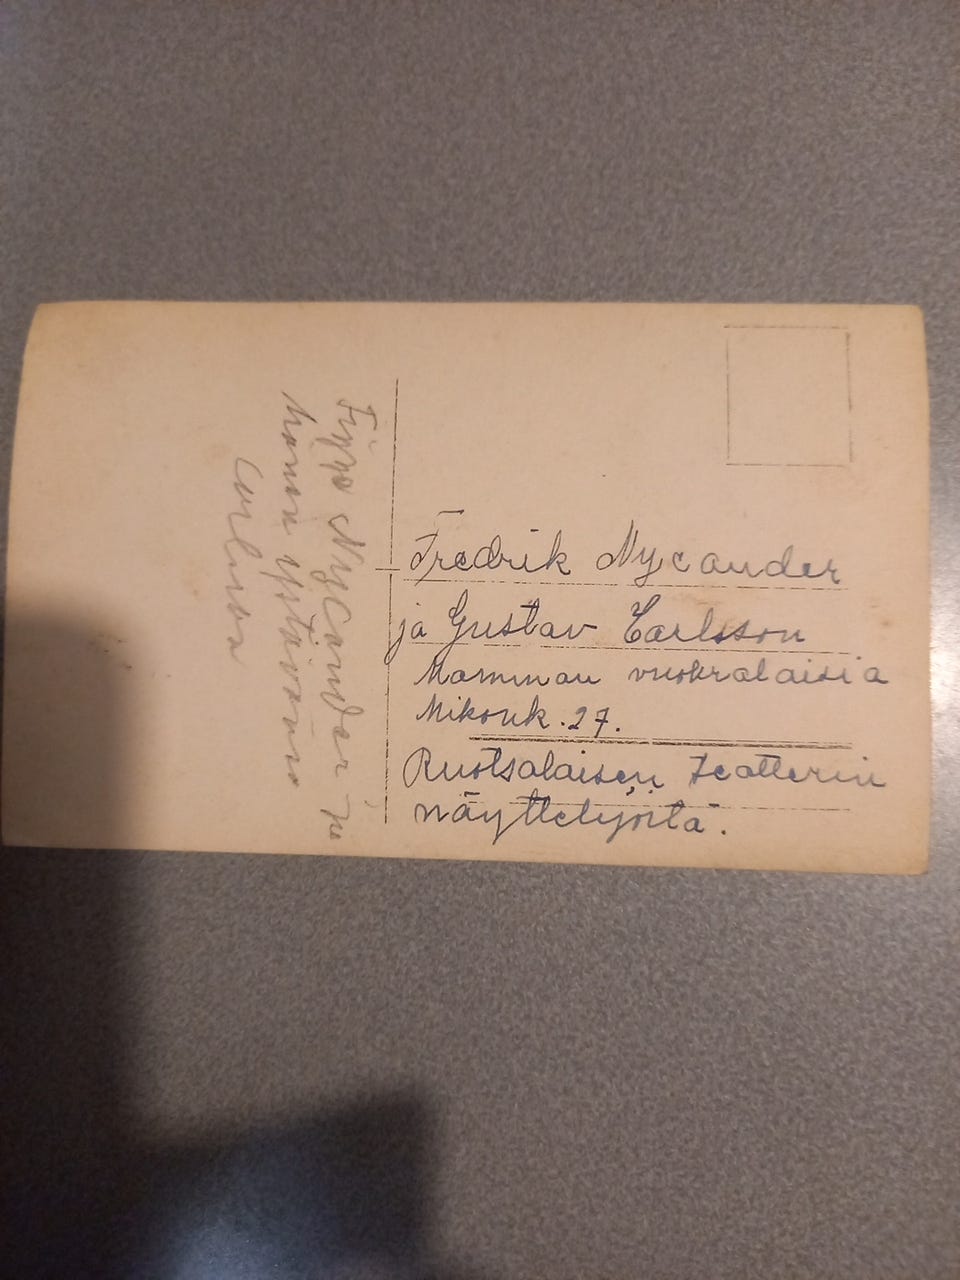 Fredrik Nycander
ja Gustav Carlsson
Mamman vuokralaisia
Mikonk. 27.
Ruotsalaisen Teatterin
näyttelijöitä.
Nycander ja
hänen ystävänsä
Carlsson